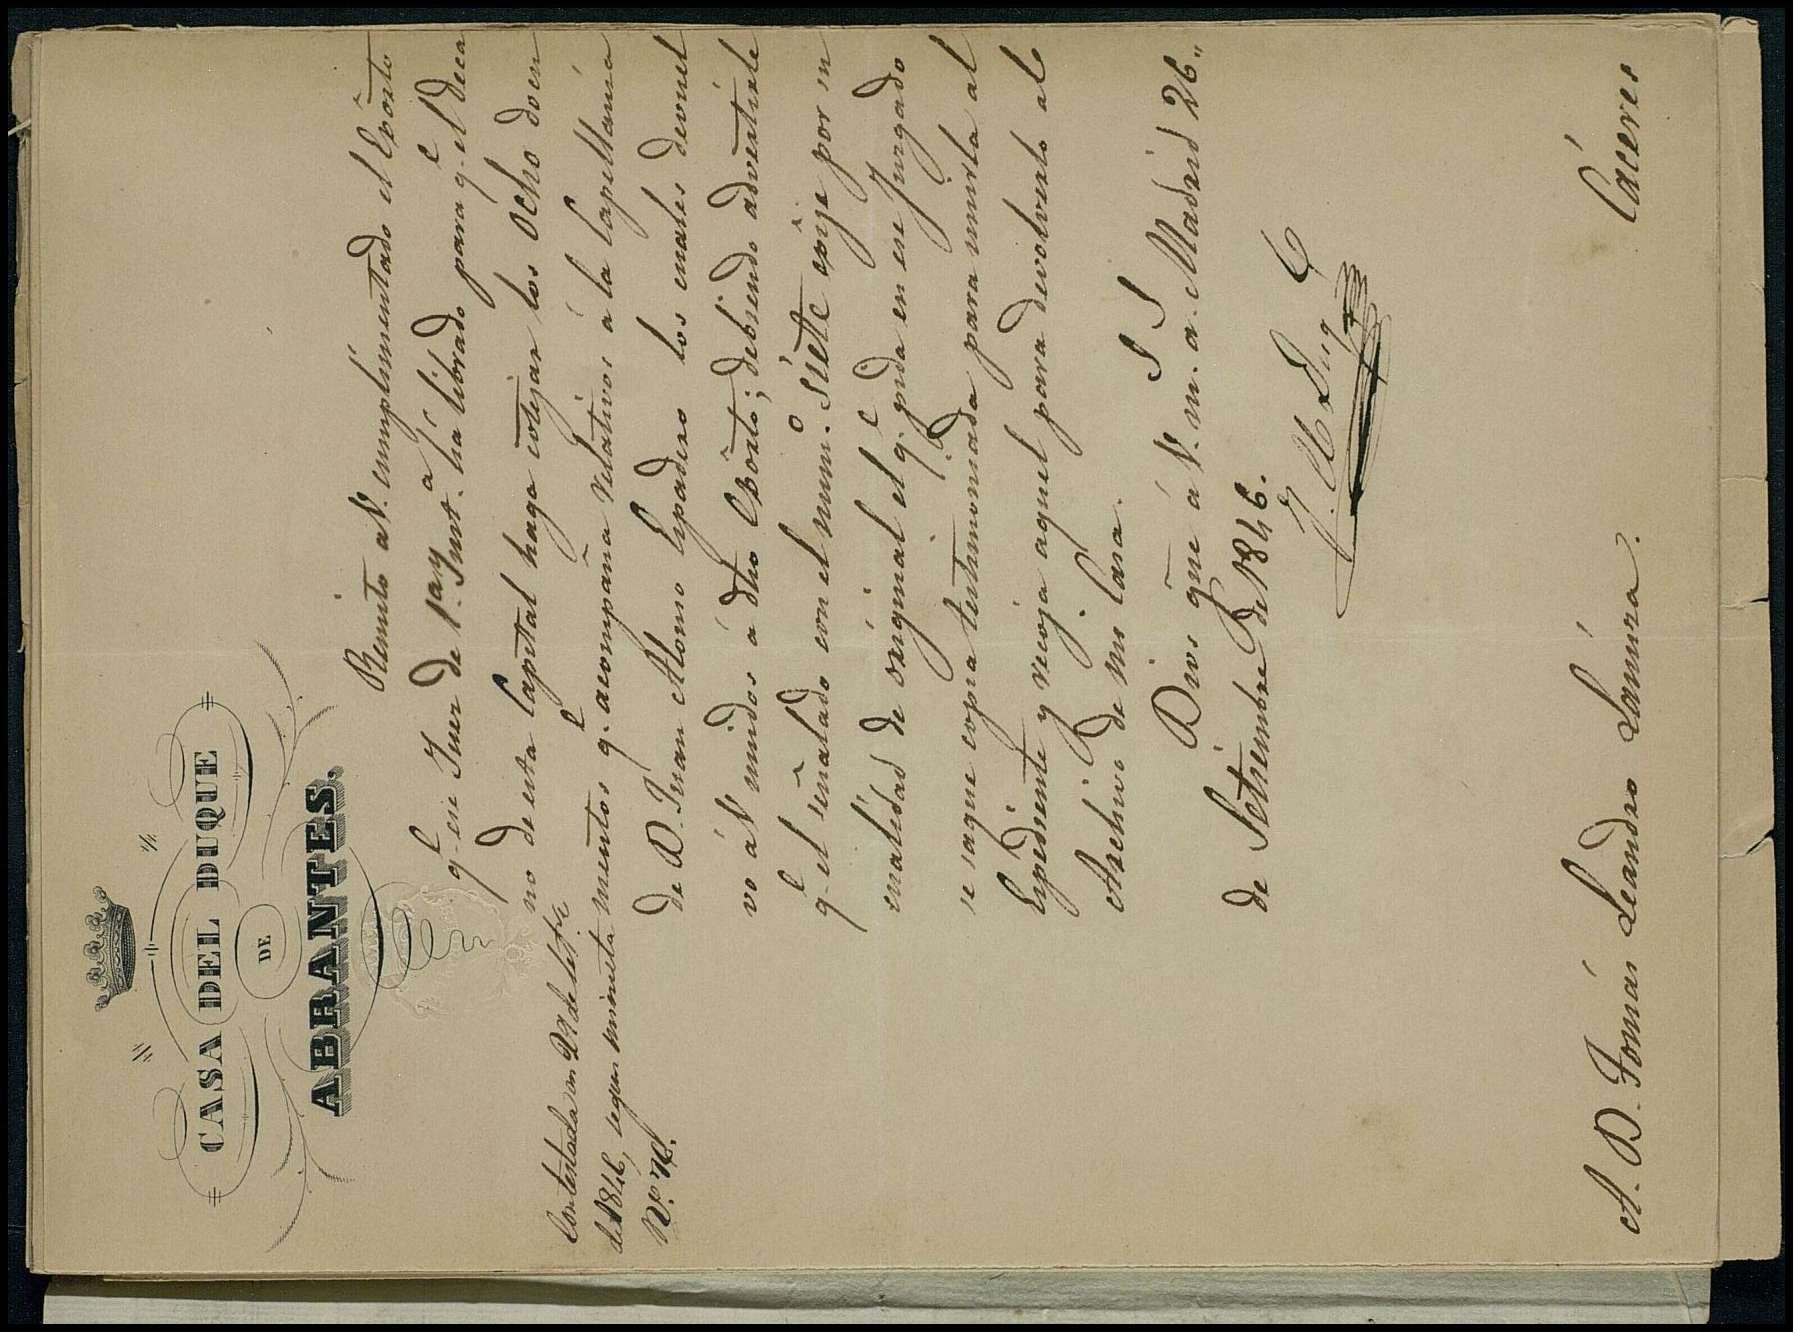 CASA DEL DUQUE
DE
ABRANTES.
Remito a V. cumplimentado el Exorto
q.e ese Juez de 1.a Inst.a há librado para q.e el Deca
no de esta Capital haga cotejar los ocho docu
mentos q.e acompaña relativos á la Capellania
de D. Juan Alonso Espadero los cuales devuel
vo á V unidos a dho Exorto; debiendo advertirle
q.e el señalado con el num.o siete exije por su
cualidad de original el q.e pida en ese Juzgado
se saque copia testimoniada para unirla al
Espediente y recoja aquel para devolverlo al
Archivo de mi Casa.
Dios gue á V. m. a. Madrid 26,,
de Setiembre de 1846.
Contestada en 29 de Set.re
de 1846, segun minuta
N.o
A. D. Tomás Leandro
Cáceres